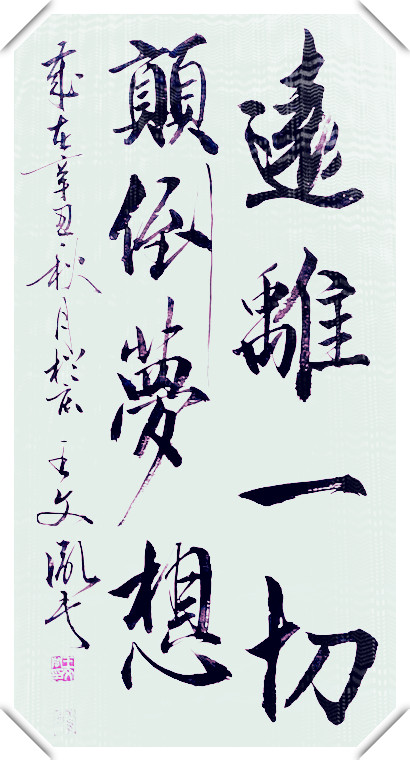 遠離一切
顛倒夢想
歲在辛丑秋月於 王文 书